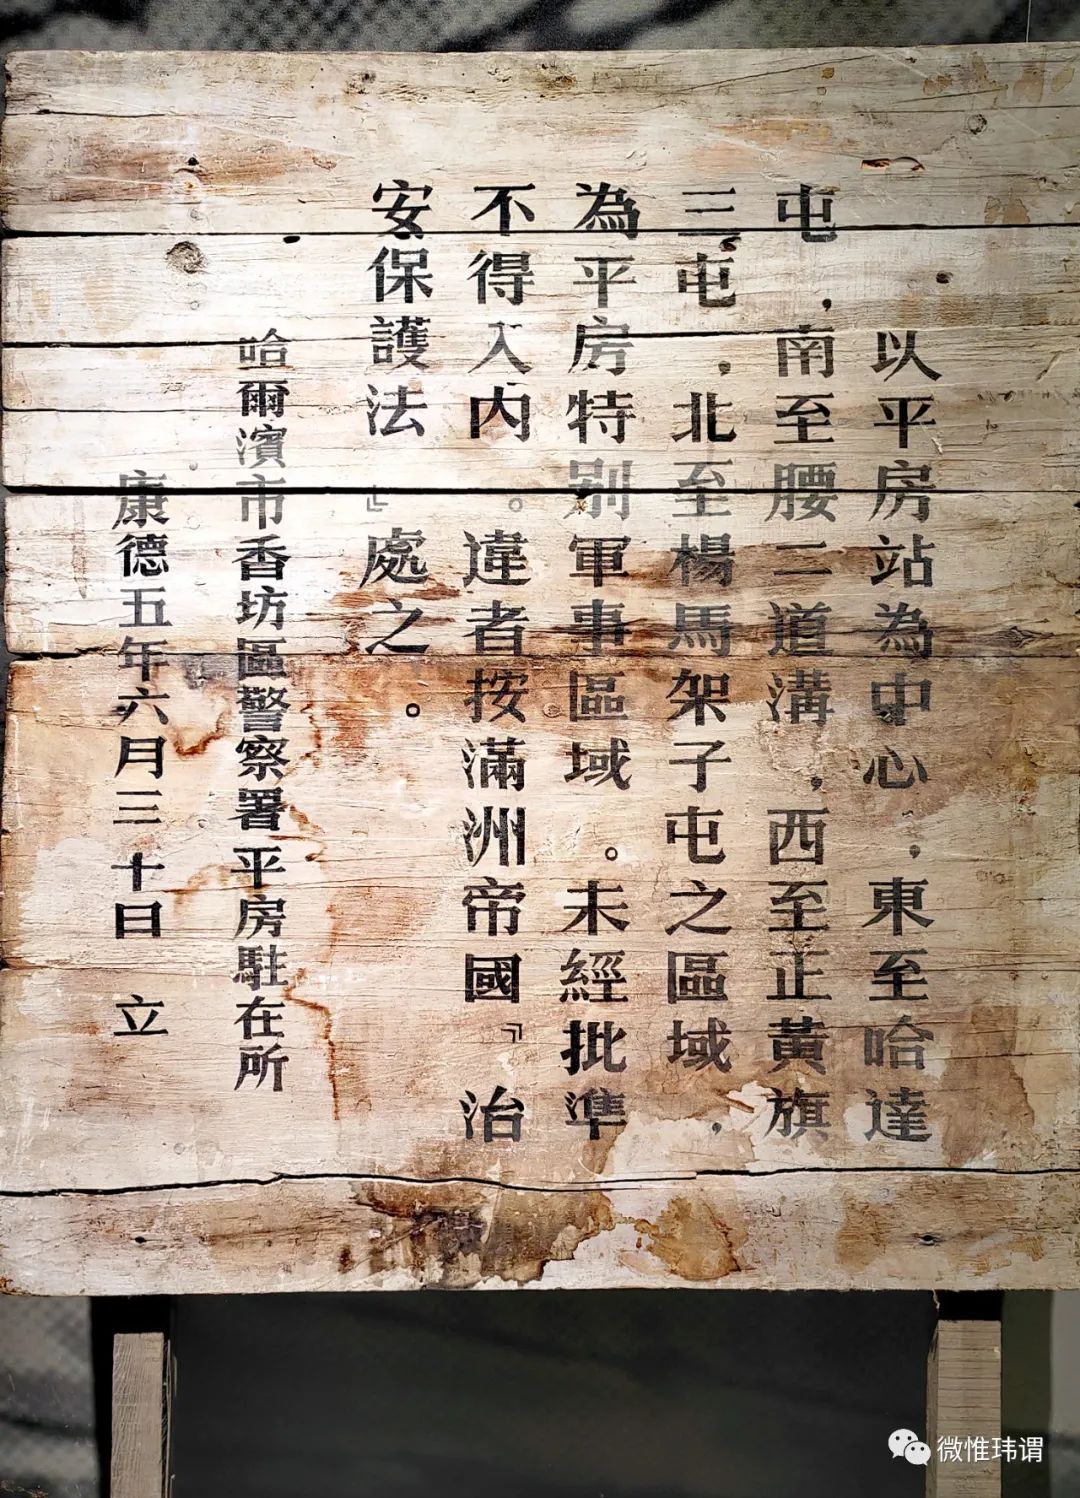 以平房站為中心，東至哈達
屯，南至腰二道溝，西至正黃旗
三屯，北至楊馬架子屯之區域，
為平房特别軍事區域。未經批準
不得入内。違者按滿洲帝國『治
安保護法』處之。
哈爾濱市香坊區警察署平房駐在所
康德五年六月三十日 立
微惟玮谓